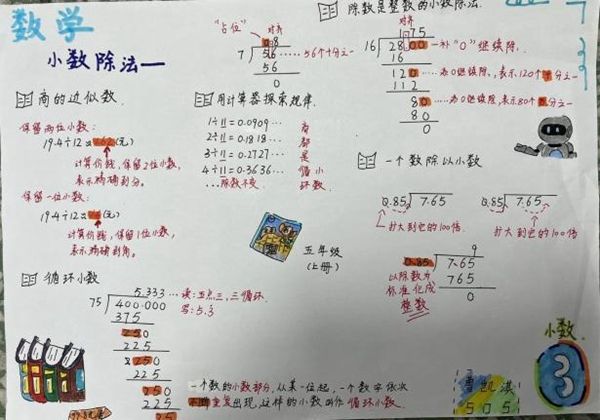 数学
小数除法一
"占位" 对齐
0.8
7 5.6 ……56个十分之一
56
0
除数是整数的小数除法.
对齐
1.75
16 28.00 ……补"0"继续除.
16
120 ……添0继续除,表示120个十分之一
112
80 ……添0继续除,表示80个百分之一
80
0
商的近似数.
保留两位小数:
19.4÷12≈1.62(元)
计算价钱,保留2位小数,
表示精确到分.
保留一位小数:
19.4÷12≈1.6(元)
计算价钱,保留1位小数,
表示精确到角.
用计算器探索规律.
1÷11=0.0909…
2÷11=0.1818…
3÷11=0.2727…
4÷11=0.3636…
…除数不变
商都是循环小数
一个数除以小数
0.85 7.65
扩大到它的100倍
0.85 7.65
扩大到它的100倍
9
0.85 7.65
765
0
以除数为
标准化成
整数
五年级
(上册)
循环小数
5.333 …读:五点三,三循环
写:5.3
75 400.000
375
250
225
250
225
250
225
一个数的小数部分,从某一位起,一个数字依次
不断重复出现,这样的小数叫作 循环小数.
小数
3
曹凯淇
5 0 5